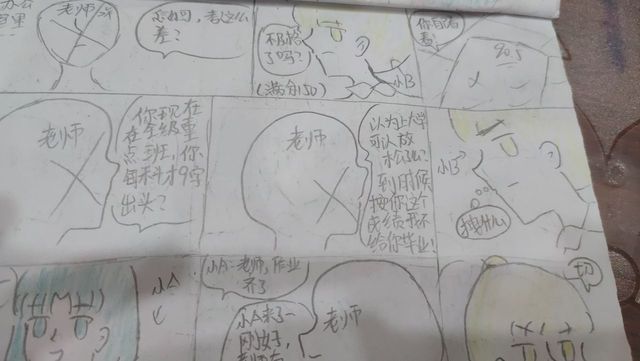 老师
怎么回事，考这么
差？
不及格
了吗？
(满分150)
小B
你自己看
看
90.5
老师
你现在
在年级重
点班，你
每来头才9字
出头？
老师
以为上大学
可以放
松了么？
到时候
按你这个
成绩我不
给你毕业！
小B
拽什么
小A
小A：老师，作业
齐了
小A来了一
刚好
老师
切